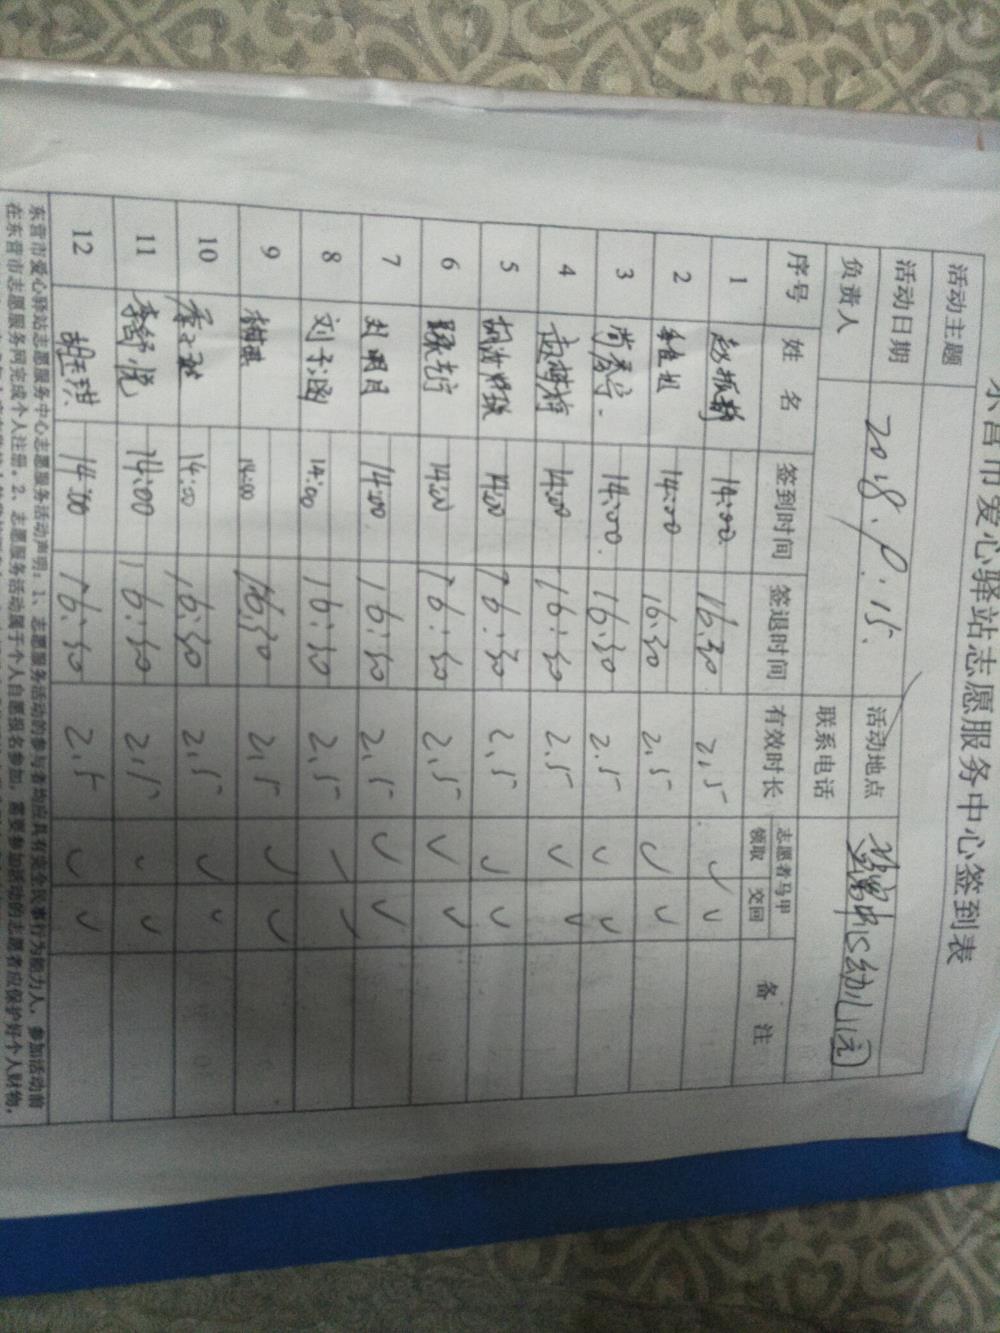 东营市爱心驿站志愿服务中心签到表
活动主题
活动日期 2018.9.15. 活动地点 中心幼儿园
负责人 联系电话
序号 姓名 签到时间 签退时间 有效时长 志愿者马甲 领取 交回 备注
1 赵振静 14:00 16:30 2.5 ✓ ✓
2 14:00 16:30 2.5 ✓ ✓
3 尚彦宁 14:00 16:30 2.5 ✓ ✓
4 14:00 16:30 2.5 ✓ ✓
5 14:00 16:30 2.5 ✓ ✓
6 14:00 16:30 2.5 ✓ ✓
7 刘明月 14:00 16:30 2.5 ✓ ✓
8 刘子涵 14:00 16:30 2.5 ✓ ✓
9 14:00 16:30 2.5 ✓ ✓
10 14:00 16:30 2.5 ✓ ✓
11 李舒悦 14:00 16:30 2.5 ✓ ✓
12 14:00 16:30 2.5 ✓ ✓
东营市爱心驿站志愿服务中心志愿服务活动声明：1、志愿服务活动的参与者均应具有完全民事行为能力人，参加活动前
在东营市志愿服务网完成个人注册。2、志愿服务活动属于个人自愿报名参加，需要参加活动的志愿者应保护好个人财物，